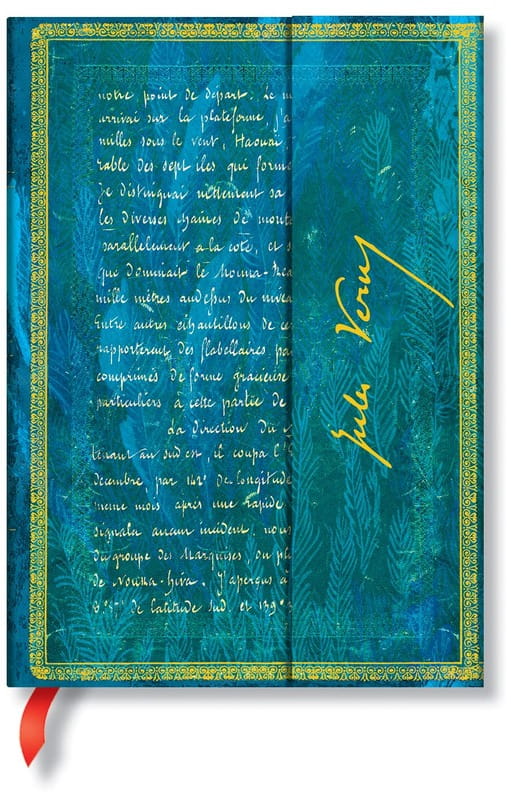 notre point de départ. Le m
arrivai sur la plateforme, j'a
milles sous le vent, Haouaï,
rable des sept iles qui forme
Je distinguai nettement sa
les diverses chaines de mont
parallelement a la cote, et s
que dominait le Mouna-Rea
mille mètres audessus du nivea
Entre autres échantillons de ce
rapporterent des flabellaires pa
comprimés de forme gracieuse
particuliers à cette partie de
La direction du
tenant au sud est, il coupa l'E
décembre, par 142° de longitude
meme mois après une rapide
signala aucun incident, nous
du groupe des Marquises, ou pl
de Nouka-hiva. J'aperçus à
8°57' de latitude sud, et 139° 3
Jules Verne